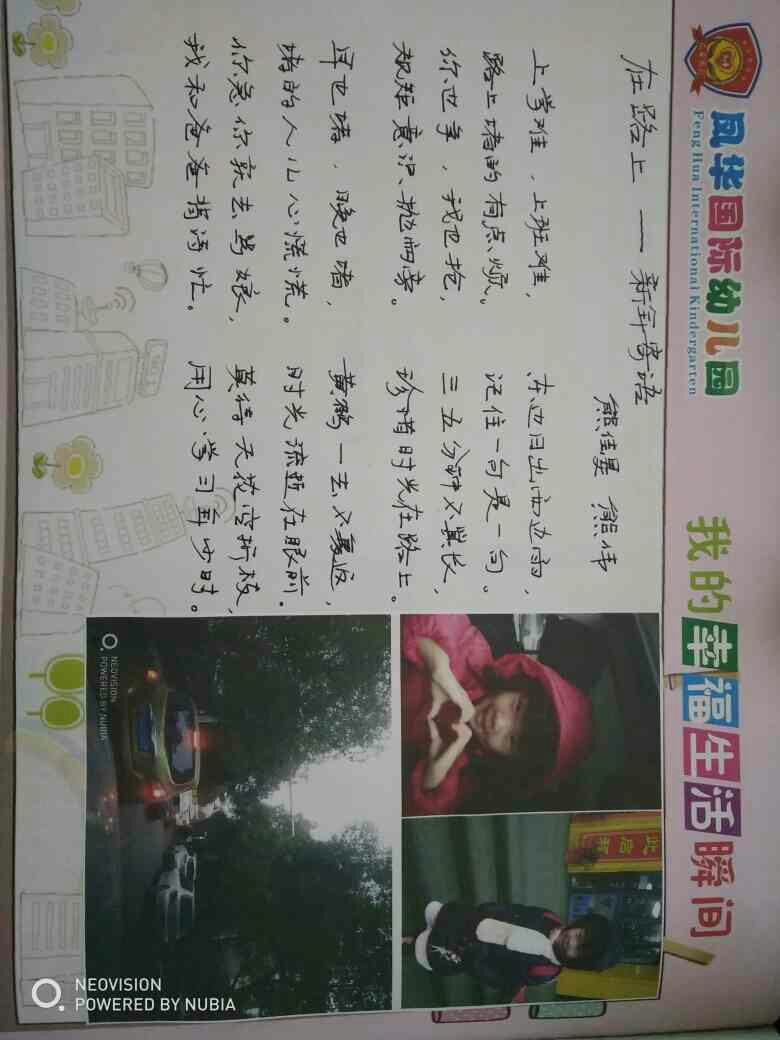 風华国际幼儿园
FengHua International Kindergarten
我的幸福生活瞬间
在路上 —— 新年寄语
熊佳 熊伟
上学难，上班难，
路上堵的有点烦。
你也争，我也抢，
规矩意识抛两旁。
早也堵，晚也堵，
堵的人儿心慌慌。
你急你就去骂娘，
我和爸爸揹诗忙。
东边日出西边雨，
记住一句是一句。
三五分钟不算长，
珍惜时光在路上。
黄鹤一去不复返，
时光流逝在眼前。
莫待无花空折枝，
用心学习年少时。
NEOVISION
POWERED BY NUBIA
NEOVISION
POWERED BY NUBIA